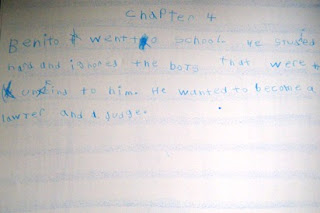 chapter 4
Benito went to school He studed
hard and ignored the boys that were
unkind to him. He wanted to become a
lawyer and a judge.